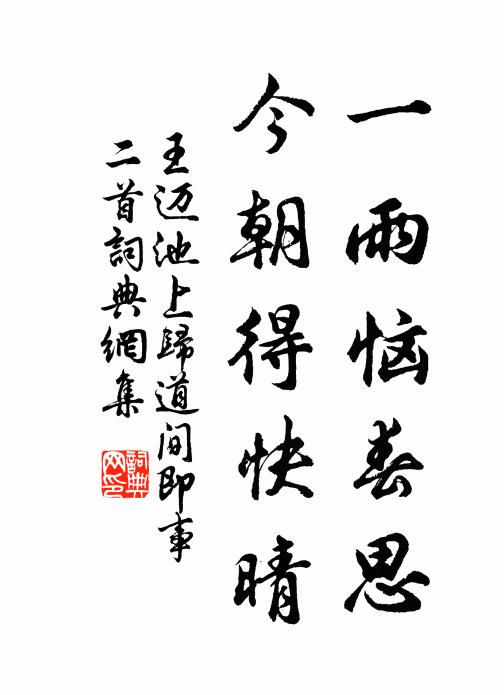 一雨恼春思
今朝得快晴
王迈池上歸道间即事
二首詞典網集
詞典
网印